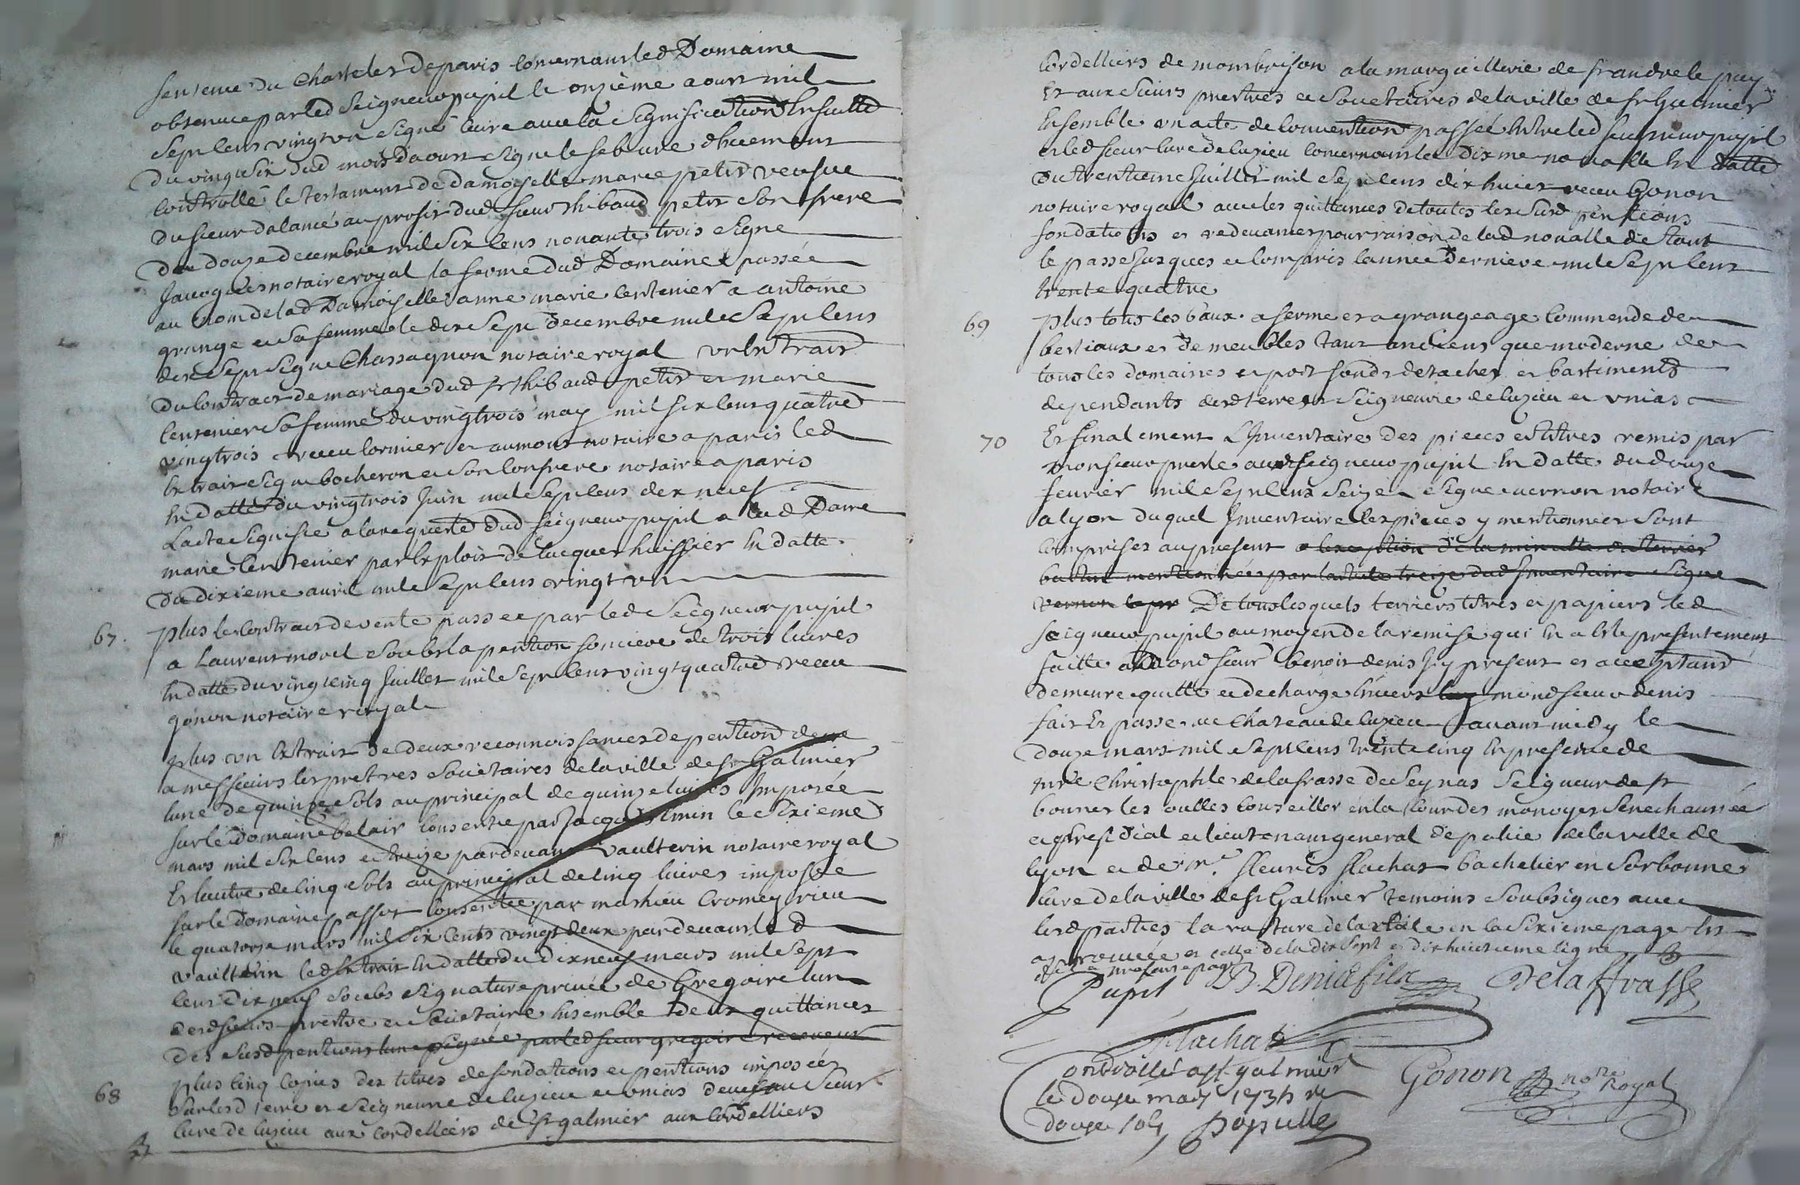 sentence du Chastelet de paris concernant led Domaine
obtenue par led Seigneur pupil le onzieme aoust mil
sept cens vingt un signé avec la signification Ensuitte
du vingt six dud mois daoust signé lefebvre duement
controllé le testament de damoiselle marie petit veufve
du sieur dalancé au profit dud sieur thibaud petit son frere
du douze decembre mil six cens nonante trois signé
Jacquet notaire royal la ferme dud Domaine passée
au nom de lad Damoiselle anne marie Centenier a antoine
grange et sa femme le dix sept decembre mil sept cens
dix sept signé Chassagnon notaire royal un Extrait
du Contract de mariage dud sr thibaud petit et marie
Centenier sa femme du vingt trois may mil six cens quatre
vingt trois receu lormier et aumont notaire a paris led
Extrait signé bocheron et son Confrere notaire a paris
En datte du vingt trois Juin mil sept cens dix neuf
Lacte signifié a la requeste dud seigneur pupil a lad Dame
marie Centenier par Exploit de huissier En datte
du dixieme avril mil sept cens vingt un
67. plus le Contract de vente passée par led Seigneur pupil
a Laurent morel soubs la pention fonciere de trois livres
En datte du vingt cinq Juillet mil sept cens vingt quatre receu
gonon notaire royal
plus un Extrait de deux reconnoissances de pention deue
a messieurs les pretres societaires de la ville de st Galmier
lune de quinze sols au principal de quinze livres Imposée
sur le Domaine belair consentie par Jacques le sixieme
mars mil six cens et treize pardevant vaultevin notaire royal
Et lautre de cinq sols au principal de cinq livres imposée
sur le Domaine passot consentie par mathieu Cromeyrieu
le quatorze mars mil six cents vingt deux pardevant led
vaultevin led Extrait En datte du dix neuf mars mil sept
cens dix neuf soubs signature privée de Gregoire lun
desd sieurs prestre et societaire Ensemble deux quittances
des susd pentions lune signée par led sieur gregoire receveur
68 plus cinq copies des titres de fondations et pentions imposées
sur lad terre et seigneurie de luzieu et unias deues au sieur
Curé de luzieu aux cordelliers de st galmier aux Cordelliers
Cordelliers de mombrison a la marguillerie de frandre le puy
Et aux sieurs prestres et societaires de la ville de st Galmier
Ensemble un acte de convention passée Entre led seigneur pupil
et led sieur Curé de luzieu concernant les dixme novalle En datte
du trentieme Juillet mil sept cens dix huict receu Gonon
notaire royal avec les quittances de toutes les susd pensions
fondations et redevances pour raison de lad novalle de tout
le passé Jusques et Compris lannée derniere mil sept cens
trente quatre
69 plus tous les baux a ferme et a grangeage Commende de
bestiaux et de meubles tant anciens que moderne de
tous les domaines et fonds detachez et bastiments
dependants desd terre et Seigneurie de luzieu et unias
70 Et finalement L'Inventaire des pieces et titres remis par
monsieur aud seigneur pupil En datte du douze
fevrier mil sept cens seize signé vernon notaire
a lyon duquel Inventaire les pieces y mentionnées sont
comprises au present a lexception de la minutte du terrier
mentionnée par larticle treize dud Inventaire signé
vernon De tous lesquels terriers titres et papiers led
seigneur pupil au moyen de la remise qui En a esté presentement
faitte a mond sieur benoit denis Icy present et acceptant
demeure quitte et dechargé Envers mond sieur denis
fait Et passé au Chateau de luzieu avant midy le
douze mars mil sept cens trente cinq En presence de
Christophle de la frasse de Seynas Seigneur de st
bonnet les oulles conseiller en la Cour des monoyes senechaussée
et presidial et lieutenant general de police de la ville de
lyon et de mre. fleuris flachat bachelier en Sorbonne
Curé de la ville de st Galmier temoins soubsignes avec
lesd parties la rasture de la en la sixieme page Est
approuvée et celle de la dix sept et dix huictieme ligne
Pupil B. Denis fils Delaffrasse
Flachat
Controllé a st galmier
le douze mars 1735 r
douze sols
Gonon nore Royal